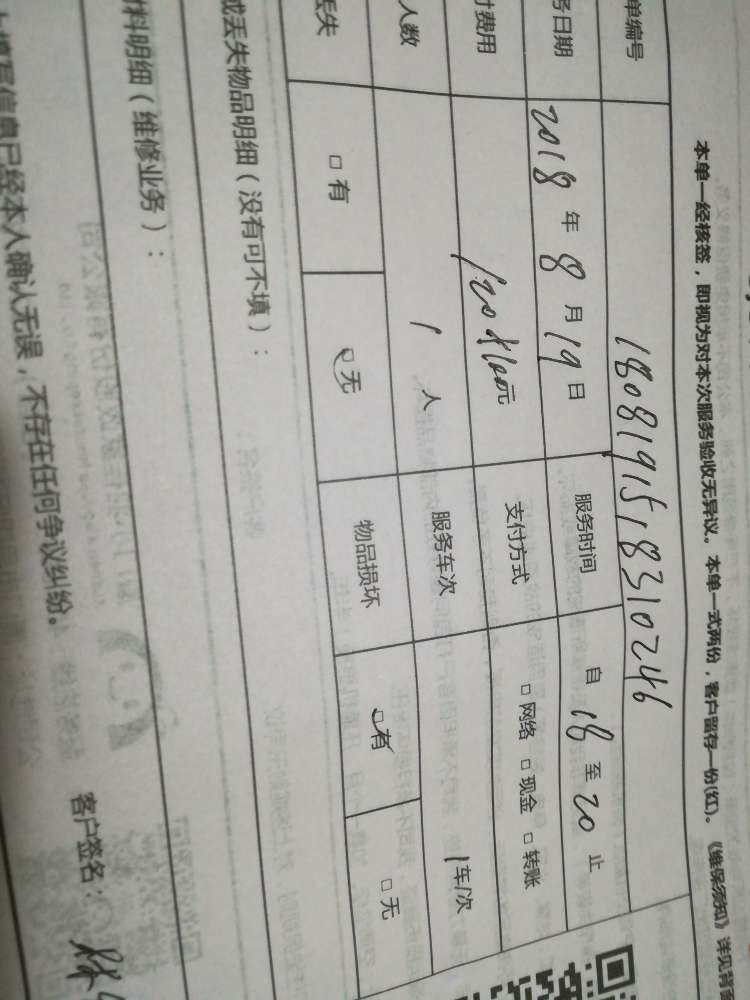 本单一经核签，即视为对本次服务验收无异议。本单一式两份，客户留存一份(红)。《维保须知》详见背面
单编号 1808191518310246
务日期 2018 年 8 月 19 日 服务时间 自 18 至 20 止
付费用 元 支付方式 □ 网络 □ 现金 □ 转账
人数 1 人 服务车次 1 车/次
丢失 □ 有 □ 无 物品损坏 □ 有 □ 无
或丢失物品明细（没有可不填）：
材料明细（维修业务）：
上填写信息已经本人确认无误，不存在任何争议纠纷。
客户签名：